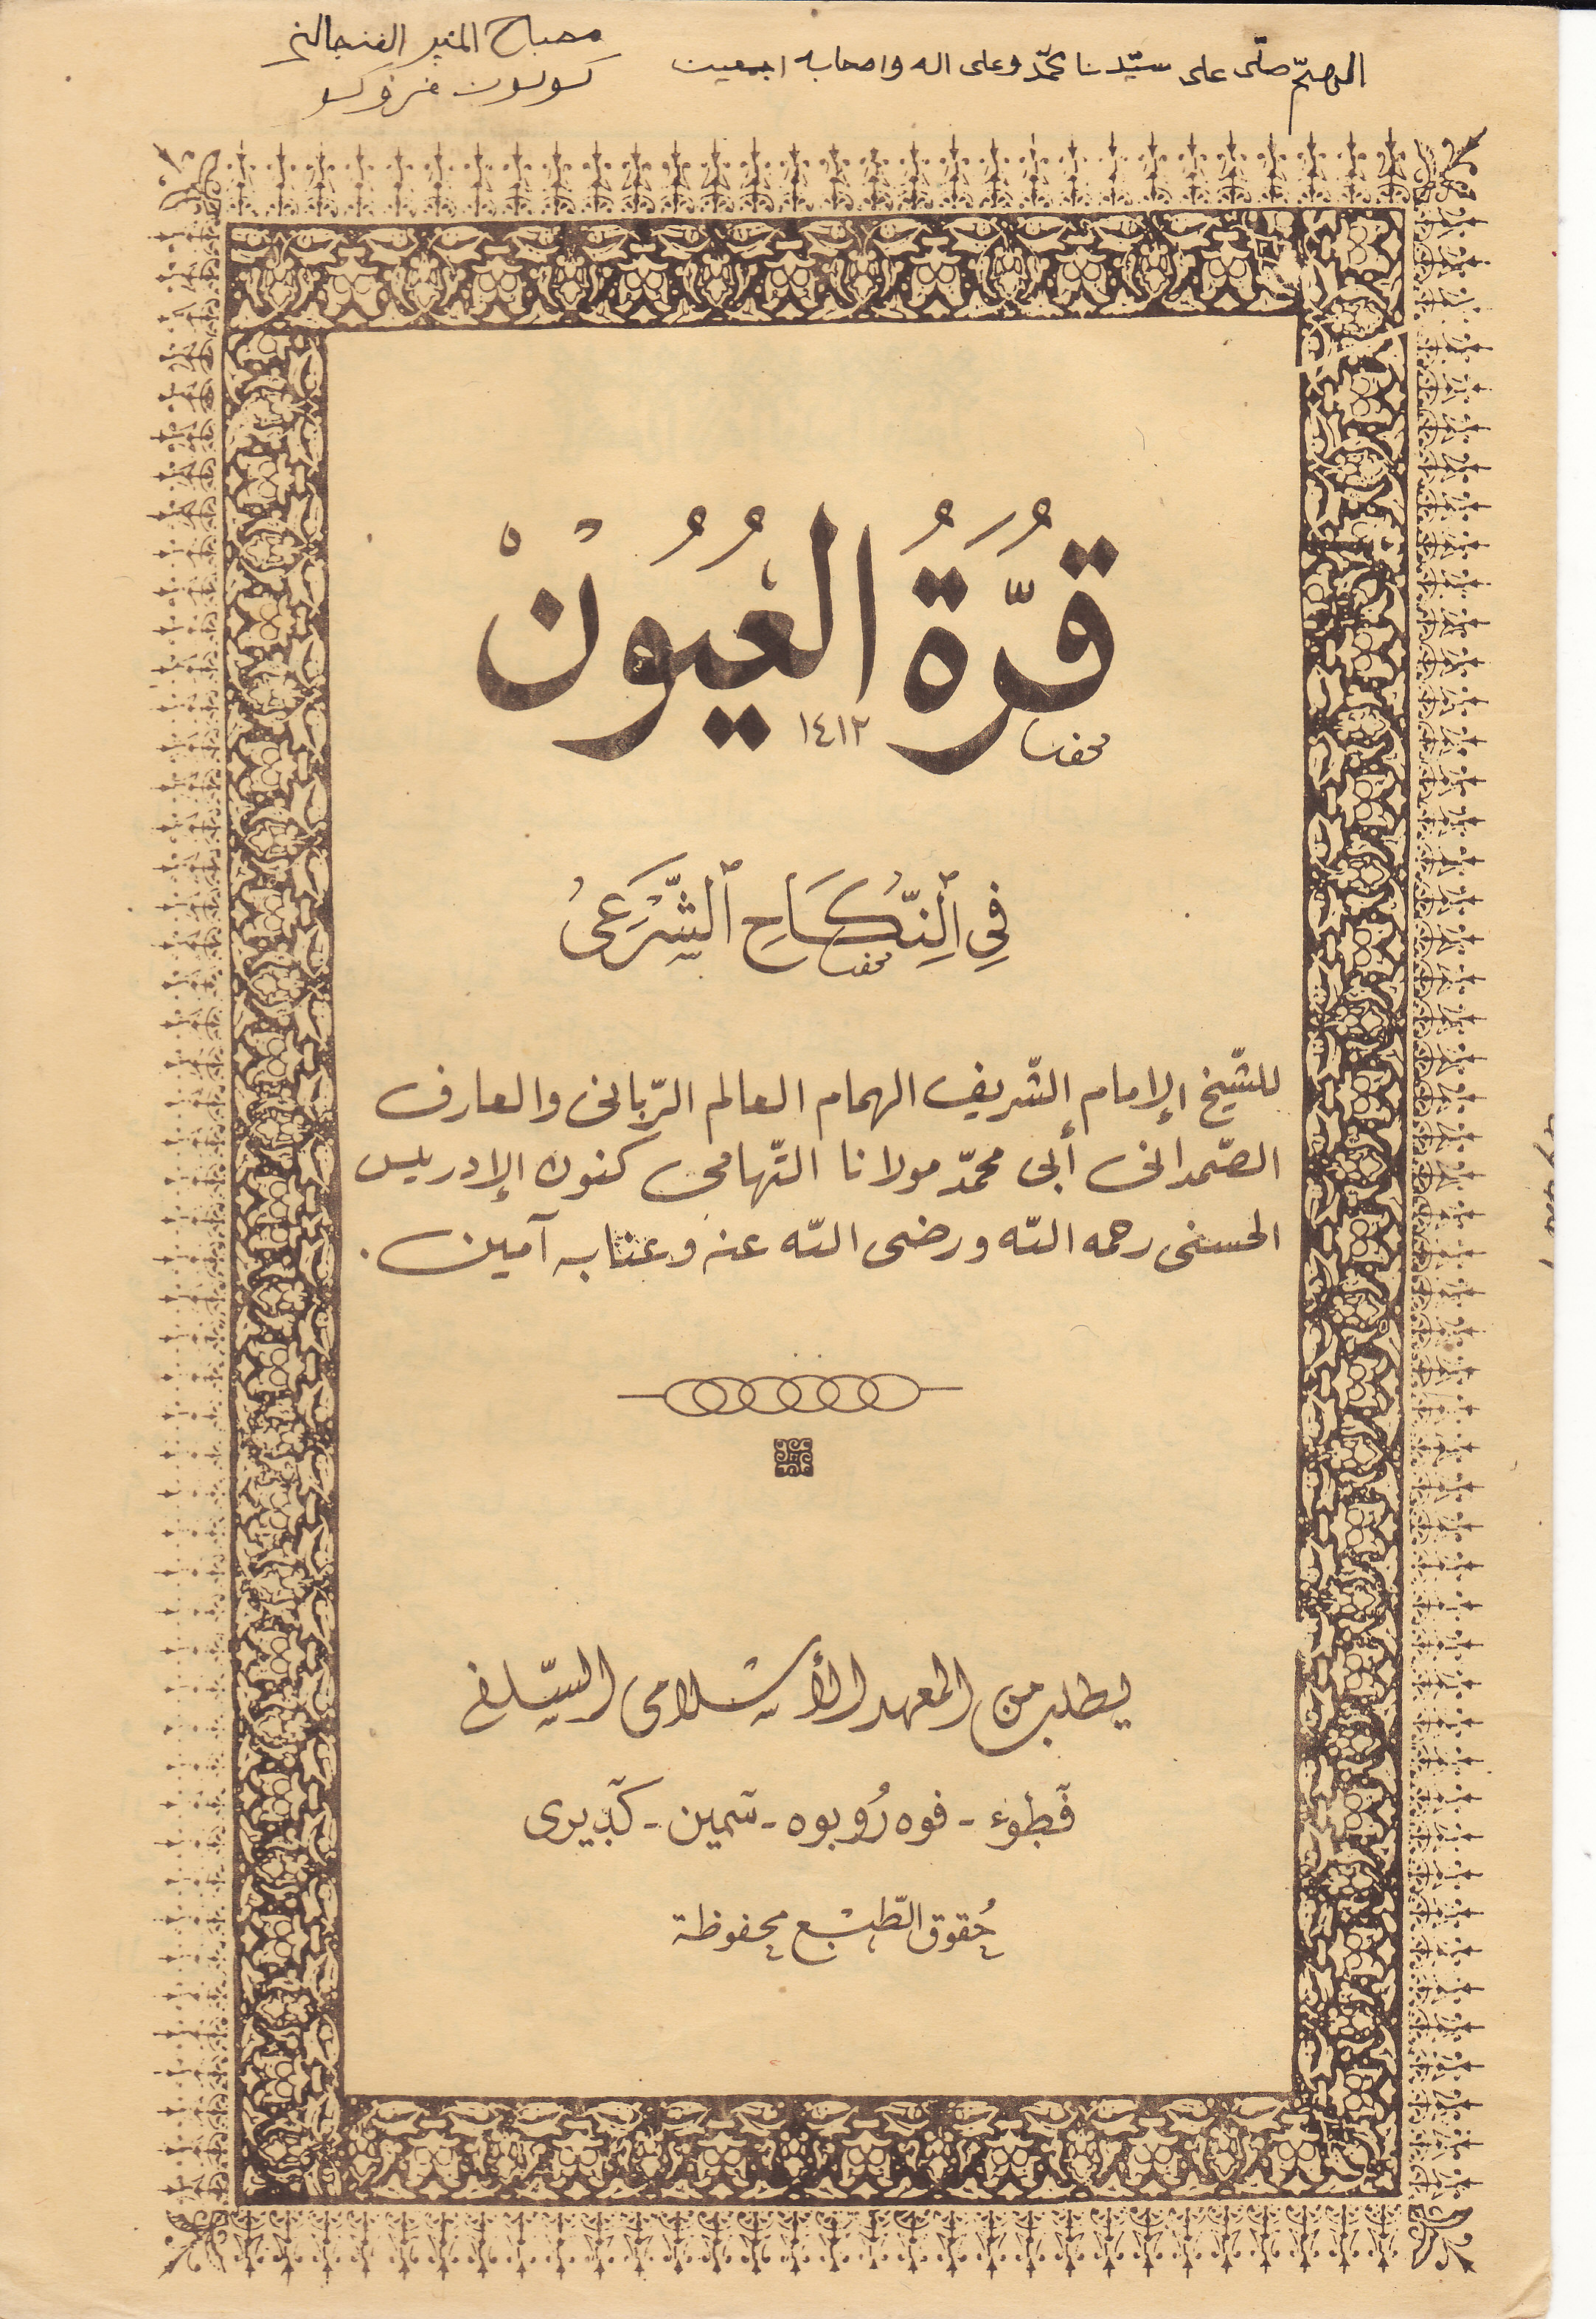 اللهمّ صلّى على سيّدنا محمّد وعلى اله واصحابه اجمعين
مصباح المنير الفنجالني
قُرَّةُ الْعُيُوُنْ
١٤١٢
فِي ٱلنِّكَاحِ ٱلشَّرْعَىُ
للشّيخ الإمام الشّريف الهمام العالم الرّبانى والعارف
الصّمدانى أبى محمّد مولانا التّهامى كنون الإدريس
الحسنى رحمه اللّه ورضى اللّه عنه وعنابه آمين.
يطلب من المعهد الأسلامى السّلفى
فطوء - فوه رُوبوه - سمين - كديرى
حُقوق الطّبْع محفوظة